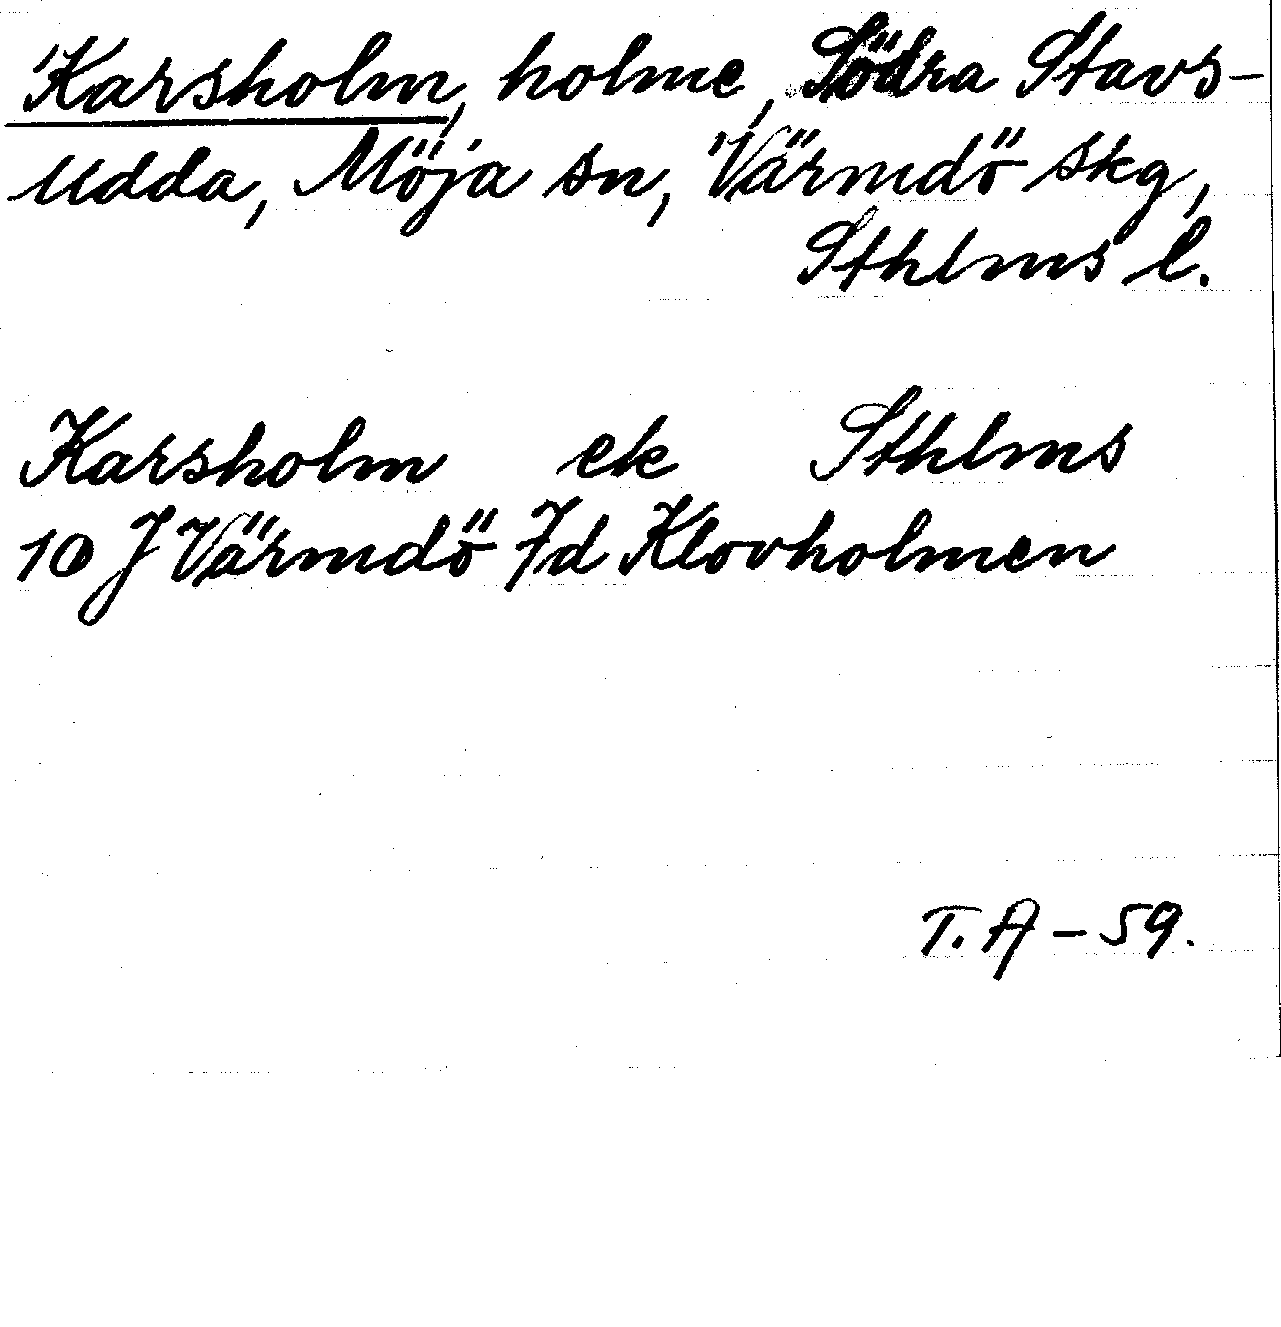 Karsholm, holme, Södra Stavs-
udda, Möja sn, Värmdö skg,
Sthlms l.
Karsholm ek Sthlms
10 J Värmdö 7d Klovholmen
T. A - 59.